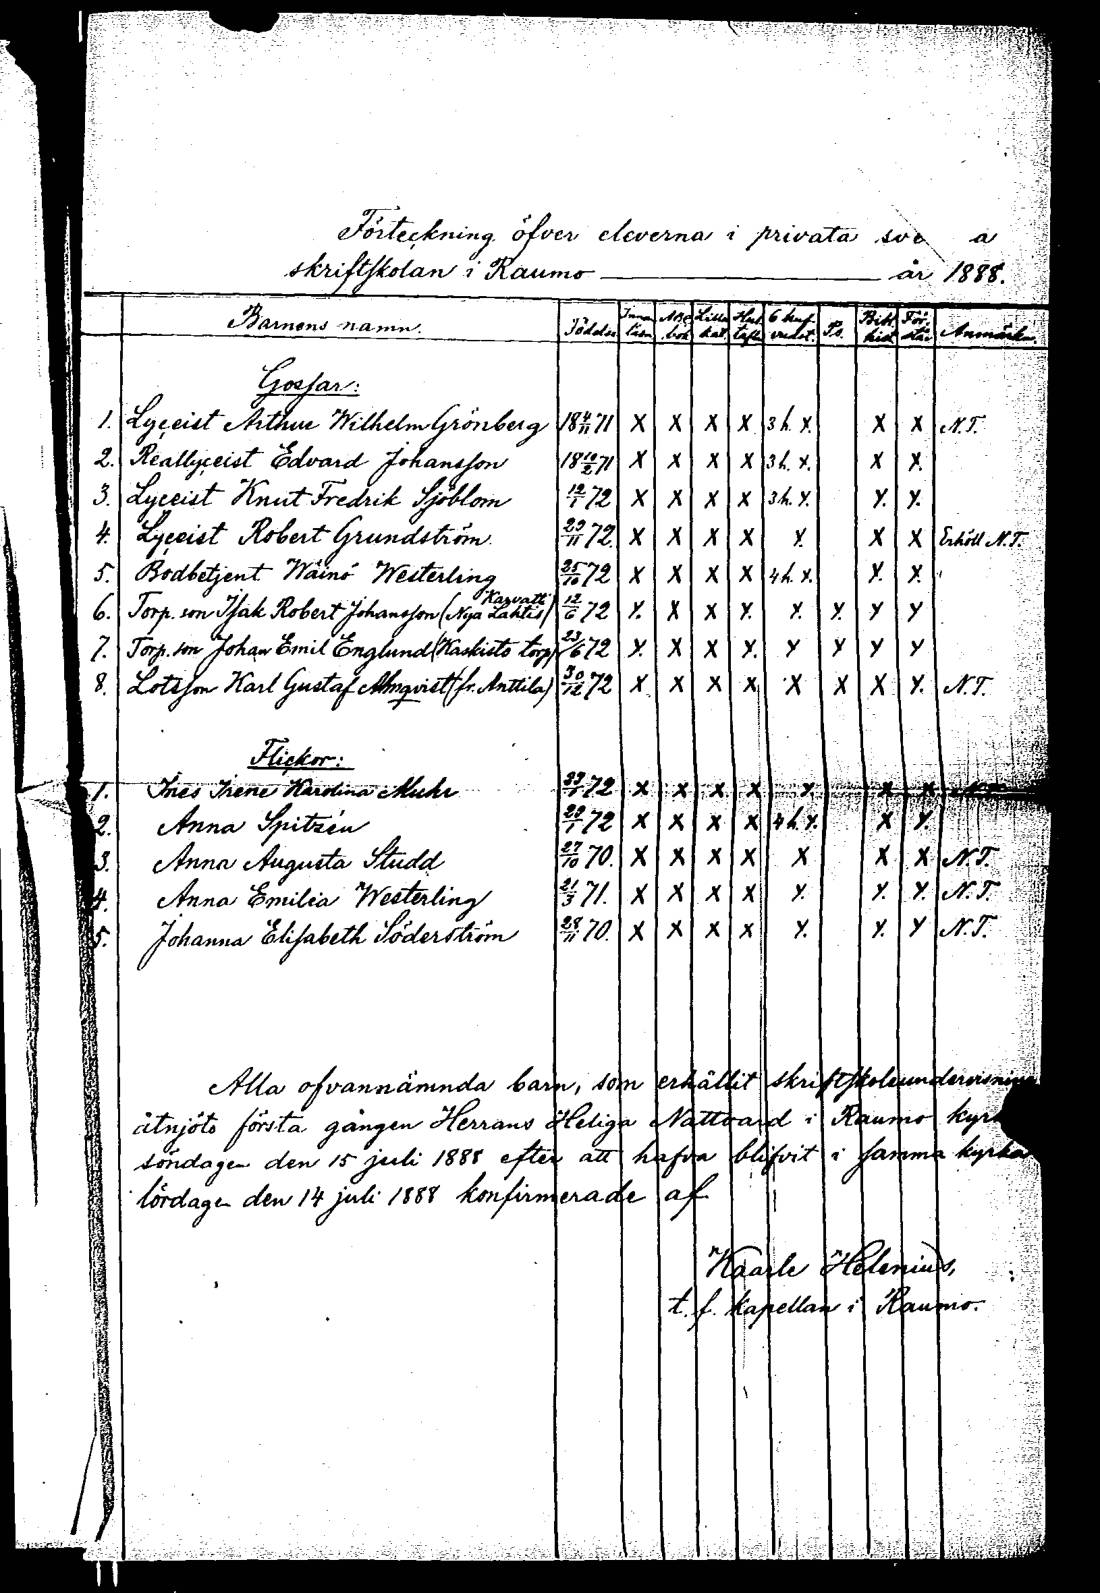 Förteckning öfver eleverna i privata sve a
skriftskolan i Raumo år 1888.
Barnens namn. Födelse Innan läsn ABC bok Lilla kat. Hus tafla 6 huf vudst. Ps. Bibl. hist För står Anmärkn.
Gossar:
1. Lyceist Arthur Wilhelm Grönberg 18 4/11 71 X X X X 3 h. X. X X N.T.
2. Reallyceist Edvard Johansson 18 10/2 71 X X X X 3 h. X. X X.
3. Lyceist Knut Fredrik Sjöblom 19/1 72 X X X X 3 h. X. X. X.
4. Lyceist Robert Grundström. 29/11 72. X X X X X. X X Erhöll N.T.
5. Bodbetjent Wäinö Westerling 25/10 72 X X X X 4 h. X. X. X.
6. Torp. son Isak Robert Johansson (Nya Lahtis Karvatti) 12/6 72 X. X X X. X. X. X X
7. Torp. son Johan Emil Englund (Kaskisto torp) 23/6 72 X. X X X. X X X X
8. Lotsson Karl Gustaf Almqvist (fr. Anttila) 30/12 72 X X X X X X X X. N.T.
Flickor:
1. Ines Irene Karolina Muhr 72 X X X X X. X X N.T.
2. Anna Spitzén 29/1 72 X X X X 4 h. X. X X.
3. Anna Augusta Studd 27/10 70. X X X X X X X N.T.
4. Anna Emilia Westerling 21/3 71. X X X X X. X. X. N.T.
5. Johanna Elisabeth Söderström 28/11 70. X X X X X. X. X N.T.
Alla ofvannämnda barn, som erhållit skriftskoleundervisning
åtnjöto första gången Herrans Heliga Nattvard i Raumo kyrka
söndagen den 15 juli 1888 efter att hafva blifvit i samma kyrka
lördagen den 14 juli 1888 konfirmerade af
Kaarle Helenius,
t. f. kapellan i Raumo.